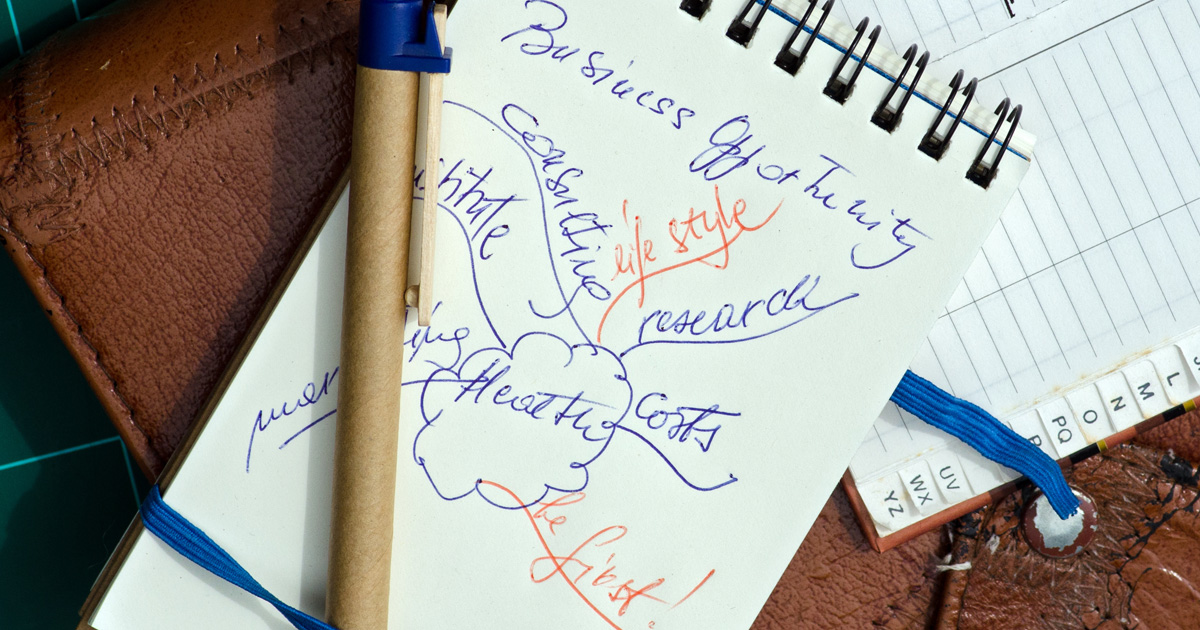 Business Opportunity
Consulting
life style
research
Healthy
Costs
be first!
L
M
N
O
PQ
R
UV
WX
YZ